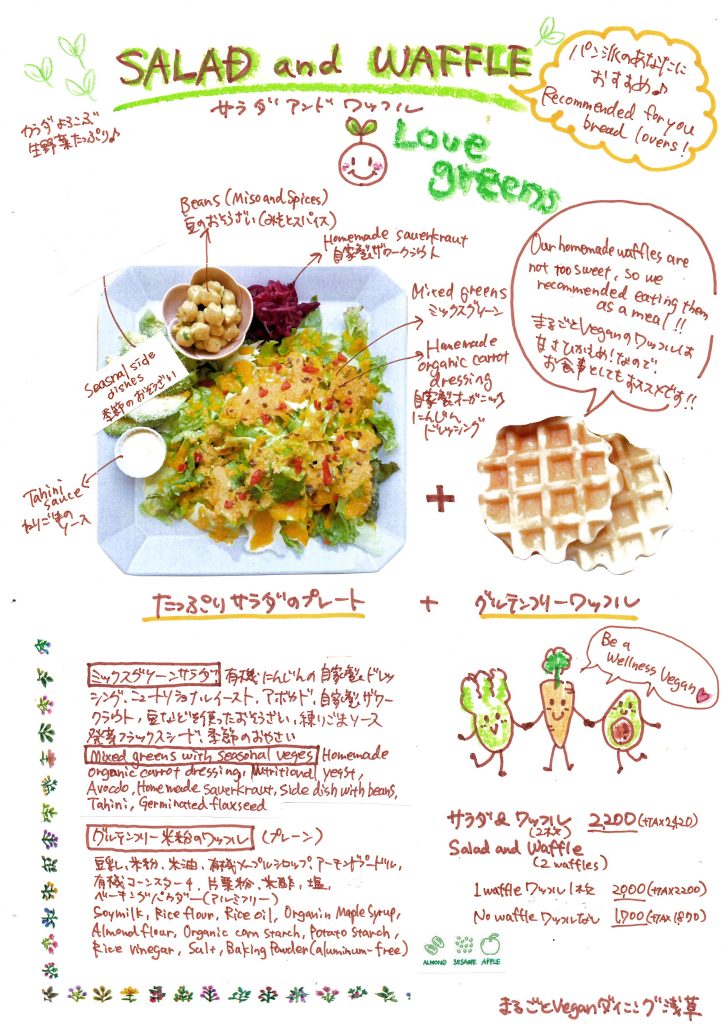 SALAD and WAFFLE
サラダ アンド ワッフル
カラダよろこぶ
生野菜たっぷり♪
パン派のあなたに
おすすめ♪
Recommended for you
bread lovers!
Love
greens
Beans (Miso and Spices)
豆のおそうざい(みそとスパイス)
Homemade sauerkraut
自家製ザワークラウト
Mixed greens
ミックスグリーン
Homemade
organic carrot
dressing
自家製オーガニック
にんじん
ドレッシング
Seasnal side
dishes
季節のおそうざい
Tahini
sauce
ねりごまの
ソース
Our homemade waffles are
not too sweet, so we
recommended eating them
as a meal!!
まるごとVeganのワッフルは
甘さひかえめ!なので、
お食事としてもおススメです!!
+
たっぷりサラダのプレート + グルテンフリーワッフル
ミックスグリーンサラダ 有機にんじんの自家製ドレッ
シング、ニュートリショナルイースト、アボカド、自家製ザワー
クラウト、豆などを使ったおそうざい、練りごまソース
発芽フラックスシード、季節のおそうざい
Mixed greens with seasonal veges Homemade
organic carrot dressing, Nutritional yeast,
Avocado, Homemade sauerkraut, Side dish with beans,
Tahini, Germinated flaxseed
グルテンフリー米粉のワッフル (プレーン)
豆乳、米粉、米油、有機メープルシロップ、アーモンドプードル、
有機コーンスターチ、片栗粉、米酢、塩、
ベーキングパウダー(アルミフリー)
Soymilk, Rice flour, Rice oil, Organin Maple Syrup,
Almond flour, Organic corn starch, Potato starch,
Rice vinegar, Salt, Baking Powder (aluminum-free)
Be a
Wellness Vegan
サラダ & ワッフル 2,200 (+TAX 2420)
(2枚)
Salad and Waffle
(2 waffles)
1 waffle ワッフル1枚 2000 (+TAX 2200)
No waffle ワッフルなし 1,700 (+TAX 1870)
ALMOND SESAME APPLE
まるごとVeganダイニング浅草